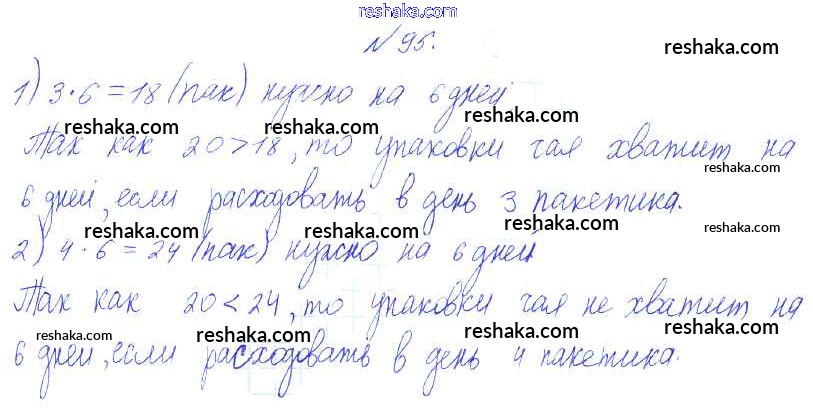 reshaka.com
№95.
reshaka.com
1) 3·6=18 (пак) нужно на 6 дней
reshaka.com reshaka.com reshaka.com
Так как 20>18, то упаковки чая хватит на
reshaka.com
6 дней, если расходовать в день 3 пакетика.
reshaka.com reshaka.com reshaka.com
2) 4·6=24 (пак) нужно на 6 дней
Так как 20<24, то упаковки чая не хватит на
reshaka.com reshaka.com reshaka.com reshaka.com
6 дней, если расходовать в день 4 пакетика.